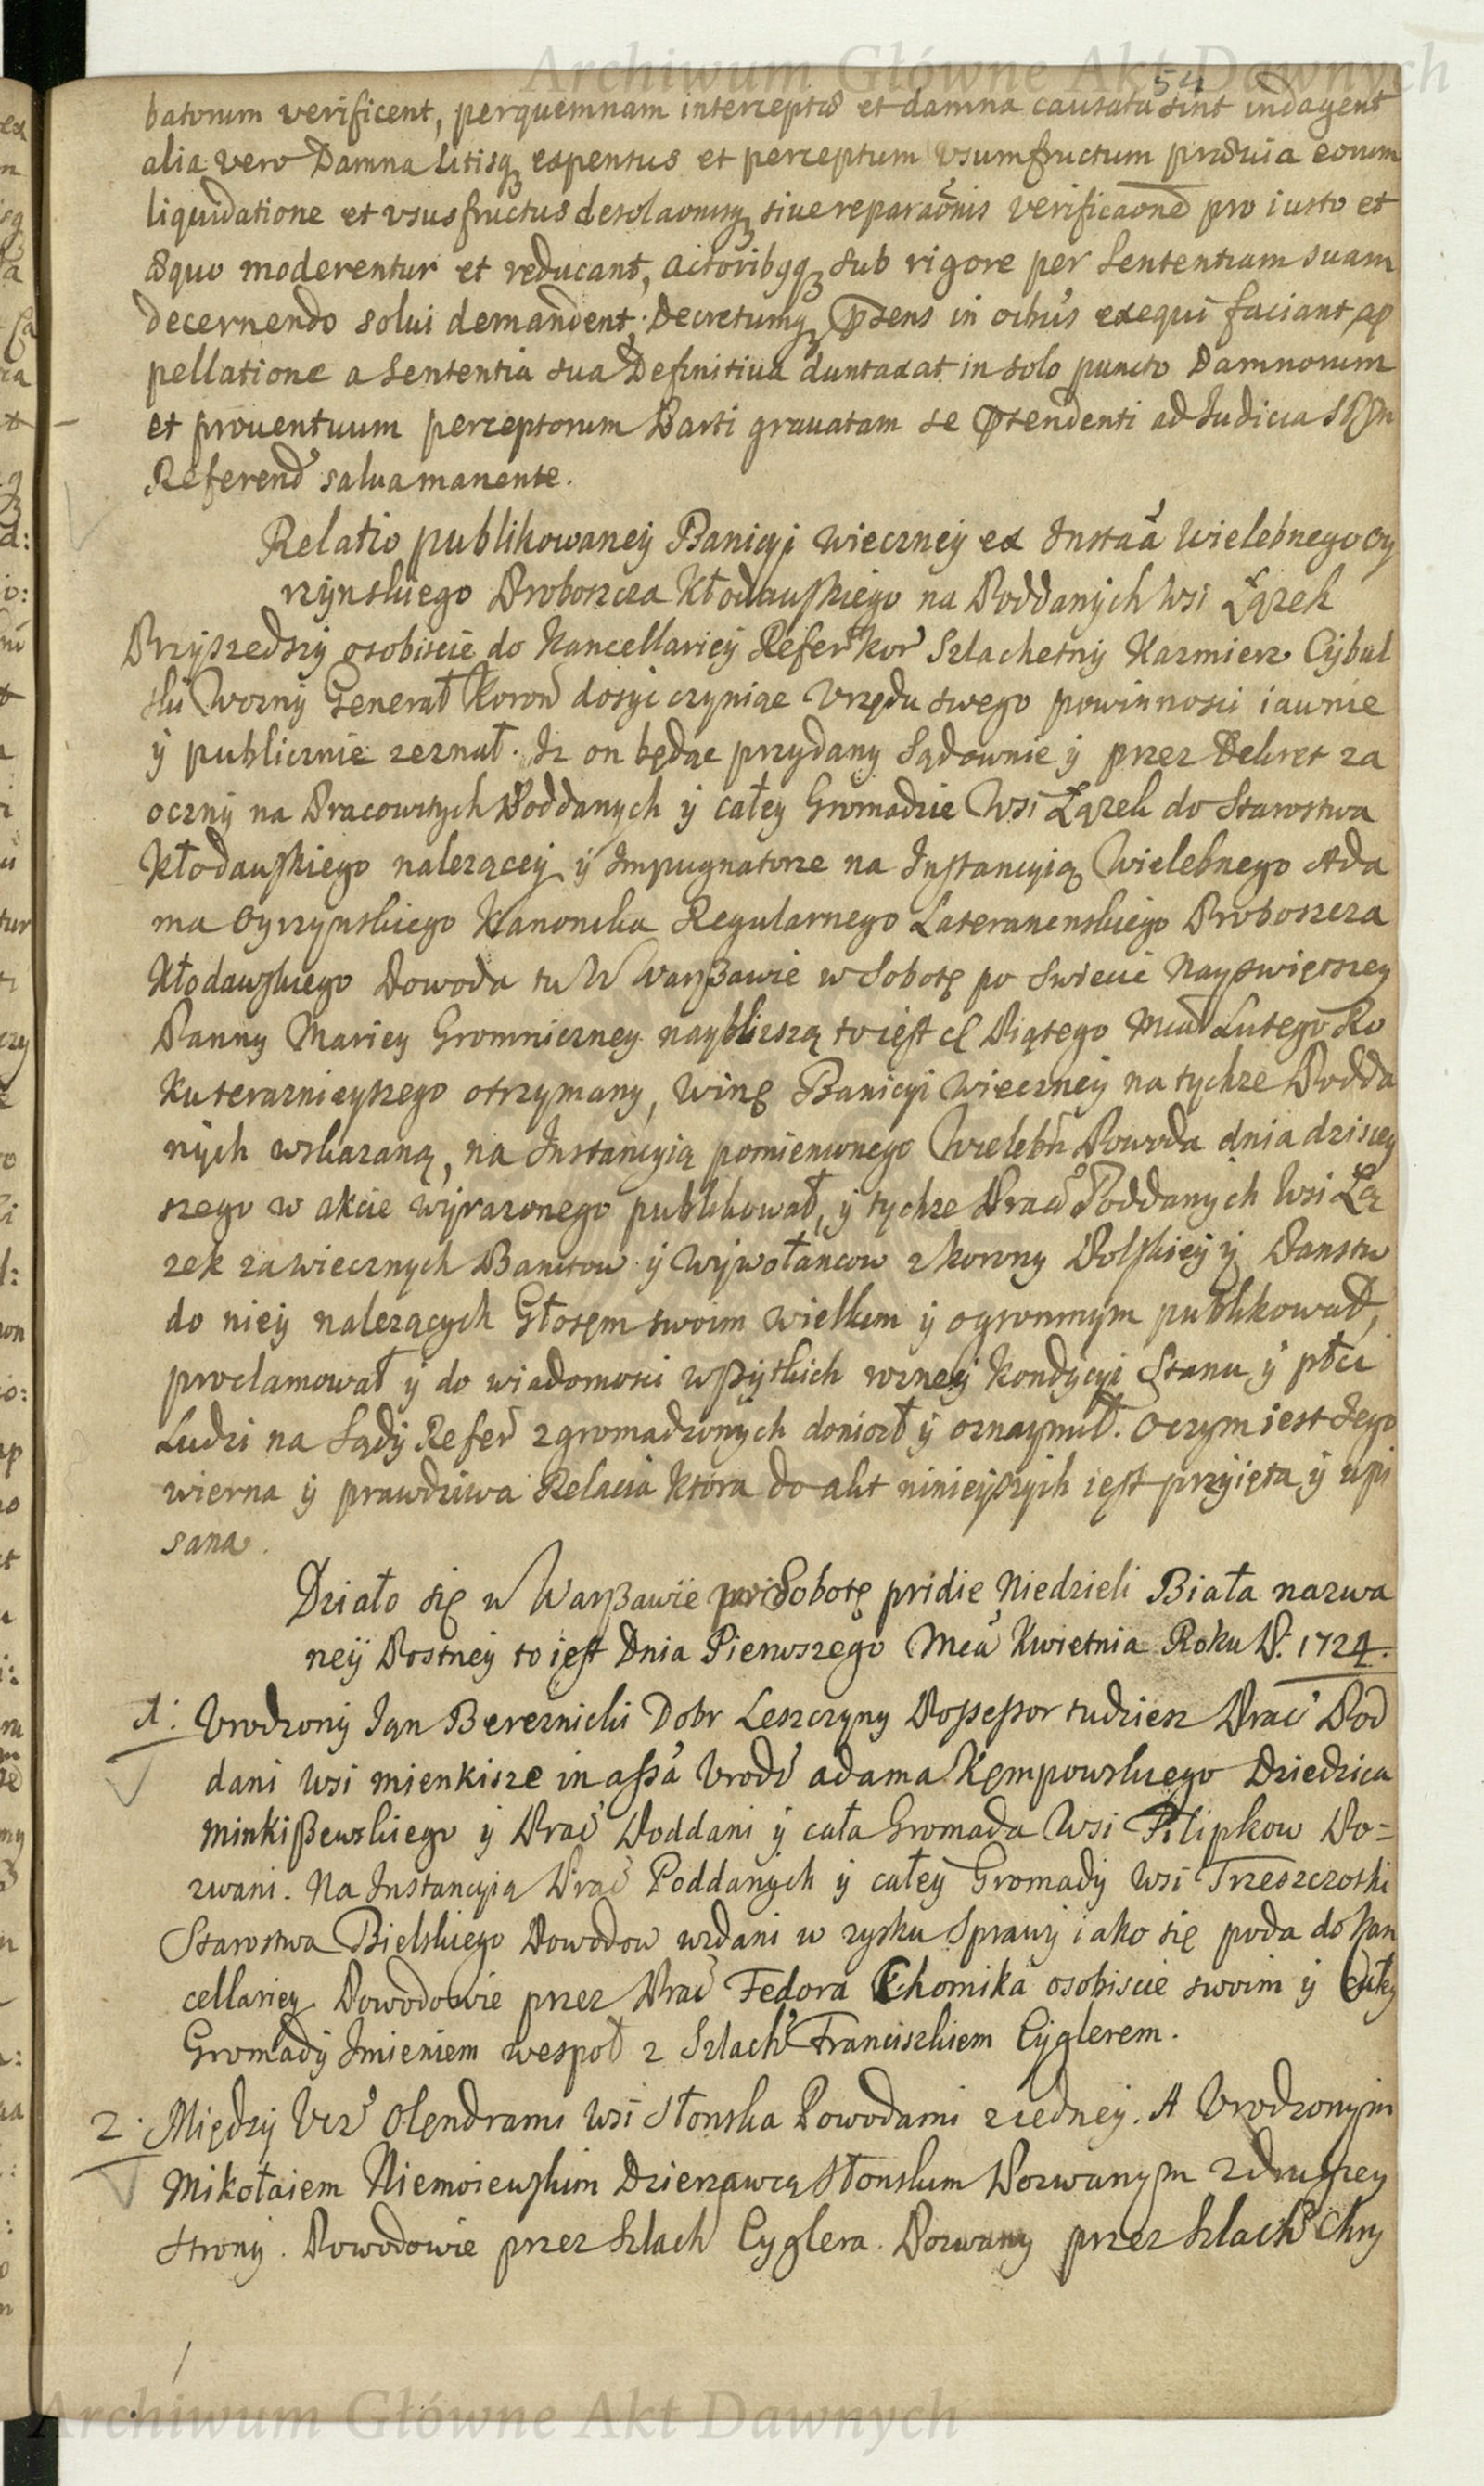 Archiwum Główne Akt Dawnych
54
batorum verificent, perquemnam interceptæ et damna causata sint indagent
alia vero Damna Litisq expensas et perceptum Vsumfructum prævia eorum
liquidatione et vsusfructus desolaonisq siue reparaonis verificaone pro iusto et
æquo moderentur et reducant, Actoribqq sub rigore per Sententiam suam
decernendo solui demandent, Decretumq Psens in oibus exequi faciant, ap
pellatione a Sententia sua Definitiua duntaxat in solo puncto Damnorum
et prouentuum perceptorum Parti grauatam se Ptendenti ad Judicia
Referend salua manente.
Relatio publikowaneÿ Banicÿi wieczneÿ ex Instaa Wielebnego Oy
rzÿnskiego Proboszcza Kłodawskiego na Poddanÿch Wsi Łązek
Przÿszedszÿ osobiscie do Kancellarieÿ Refer kor Szlachetnÿ Kazmierz Cÿbul
ski Woznÿ Generał Koron dosÿc czÿniąc Vrzędu swego powinnosci iawnie
ÿ publicznie zeznał. Iz on będąc przydany Sądownie ÿ przez Dekret za
ocznÿ na Pracowitÿch Poddanych ÿ całeÿ Gromadzie Wsi Łązek do Starostwa
Kłodawskiego nalezącey ÿ Impugnatorze na Instancyią Wielebnego Ada
ma Oyrzynskiego Kanonika Regularnego Lateranenskiego Proboszcza
Kłodawskiego Powoda tu W Warszawie w Sobotę po Swięcie Nayswiętszey
Panny Mariey Gromniczney naybliższą to iest d Piątego Mca Lutego Ro
ku teraznieyszego otrzymany, winę Banicyi wieczneÿ na tychze Podda
nÿch wskazaną, na Instancÿią pomienionego Wielebn Powoda dnia dzisiey
szego w akcie wÿrazonego publikował, ÿ tychze Prac Poddanÿch Wsi Łą
zek za wiecznÿch Banitow ÿ Wÿwołancow z korony Polskieÿ ÿ Panstw
do nieÿ nalezącÿch Głosem swoim wielkim ÿ ogromnym publikował,
proclamował ÿ do wiadomosci wszÿtkich rozneÿ Kondÿcÿi Stanu ÿ płci
Ludzi na Sądÿ Refer zgromadzonÿch doniosł ÿ oznaÿmił. O czym iest Jego
wierna ÿ prawdziwa Relacia Ktora do akt ninieÿszÿch iest przÿięta ÿ wpi
sana.
Działo się w Warszawie Sobotę pridie Niedzieli Biała nazwa
neÿ Postneÿ to iest Dnia Pierwszego Mca Kwietnia Roku P. 1724.
1: Vrodzonÿ Jan Bereznicki Dobr Leszczyny Possessor tudziesz Prac Pod
dani Wsi mienkisze in assa Vrodo adama Kempowskiego Dziedzica
minkiszewskiego ÿ Prac Poddani ÿ cała Gromada Wsi Pilipkow Po=
zwani. Na Instancyią Prac Poddanÿch ÿ całeÿ Gromadÿ Wsi Trzeszczotki
Starostwa Bielskiego Powodow wzdani w zysku Sprawÿ iako się poda do Kan
cellariey. Powodowie przez Prac Fedora Chomika osobiscie swoim ÿ całeÿ
Gromadÿ Imieniem wespoł z Szlach Franciszkiem Cÿglerem.
2. Międzÿ Vcz Olendrami Wsi Słonska Powodami z iedneÿ. A Vrodzonym
Mikołaiem Niemoiewskim Dzierzawcą Słonskim Pozwanym z drugiey
stronÿ. Powodowie przez Szlach Cyglera. Pozwany przez Szlach Chrÿ
Archiwum Główne Akt Dawnych